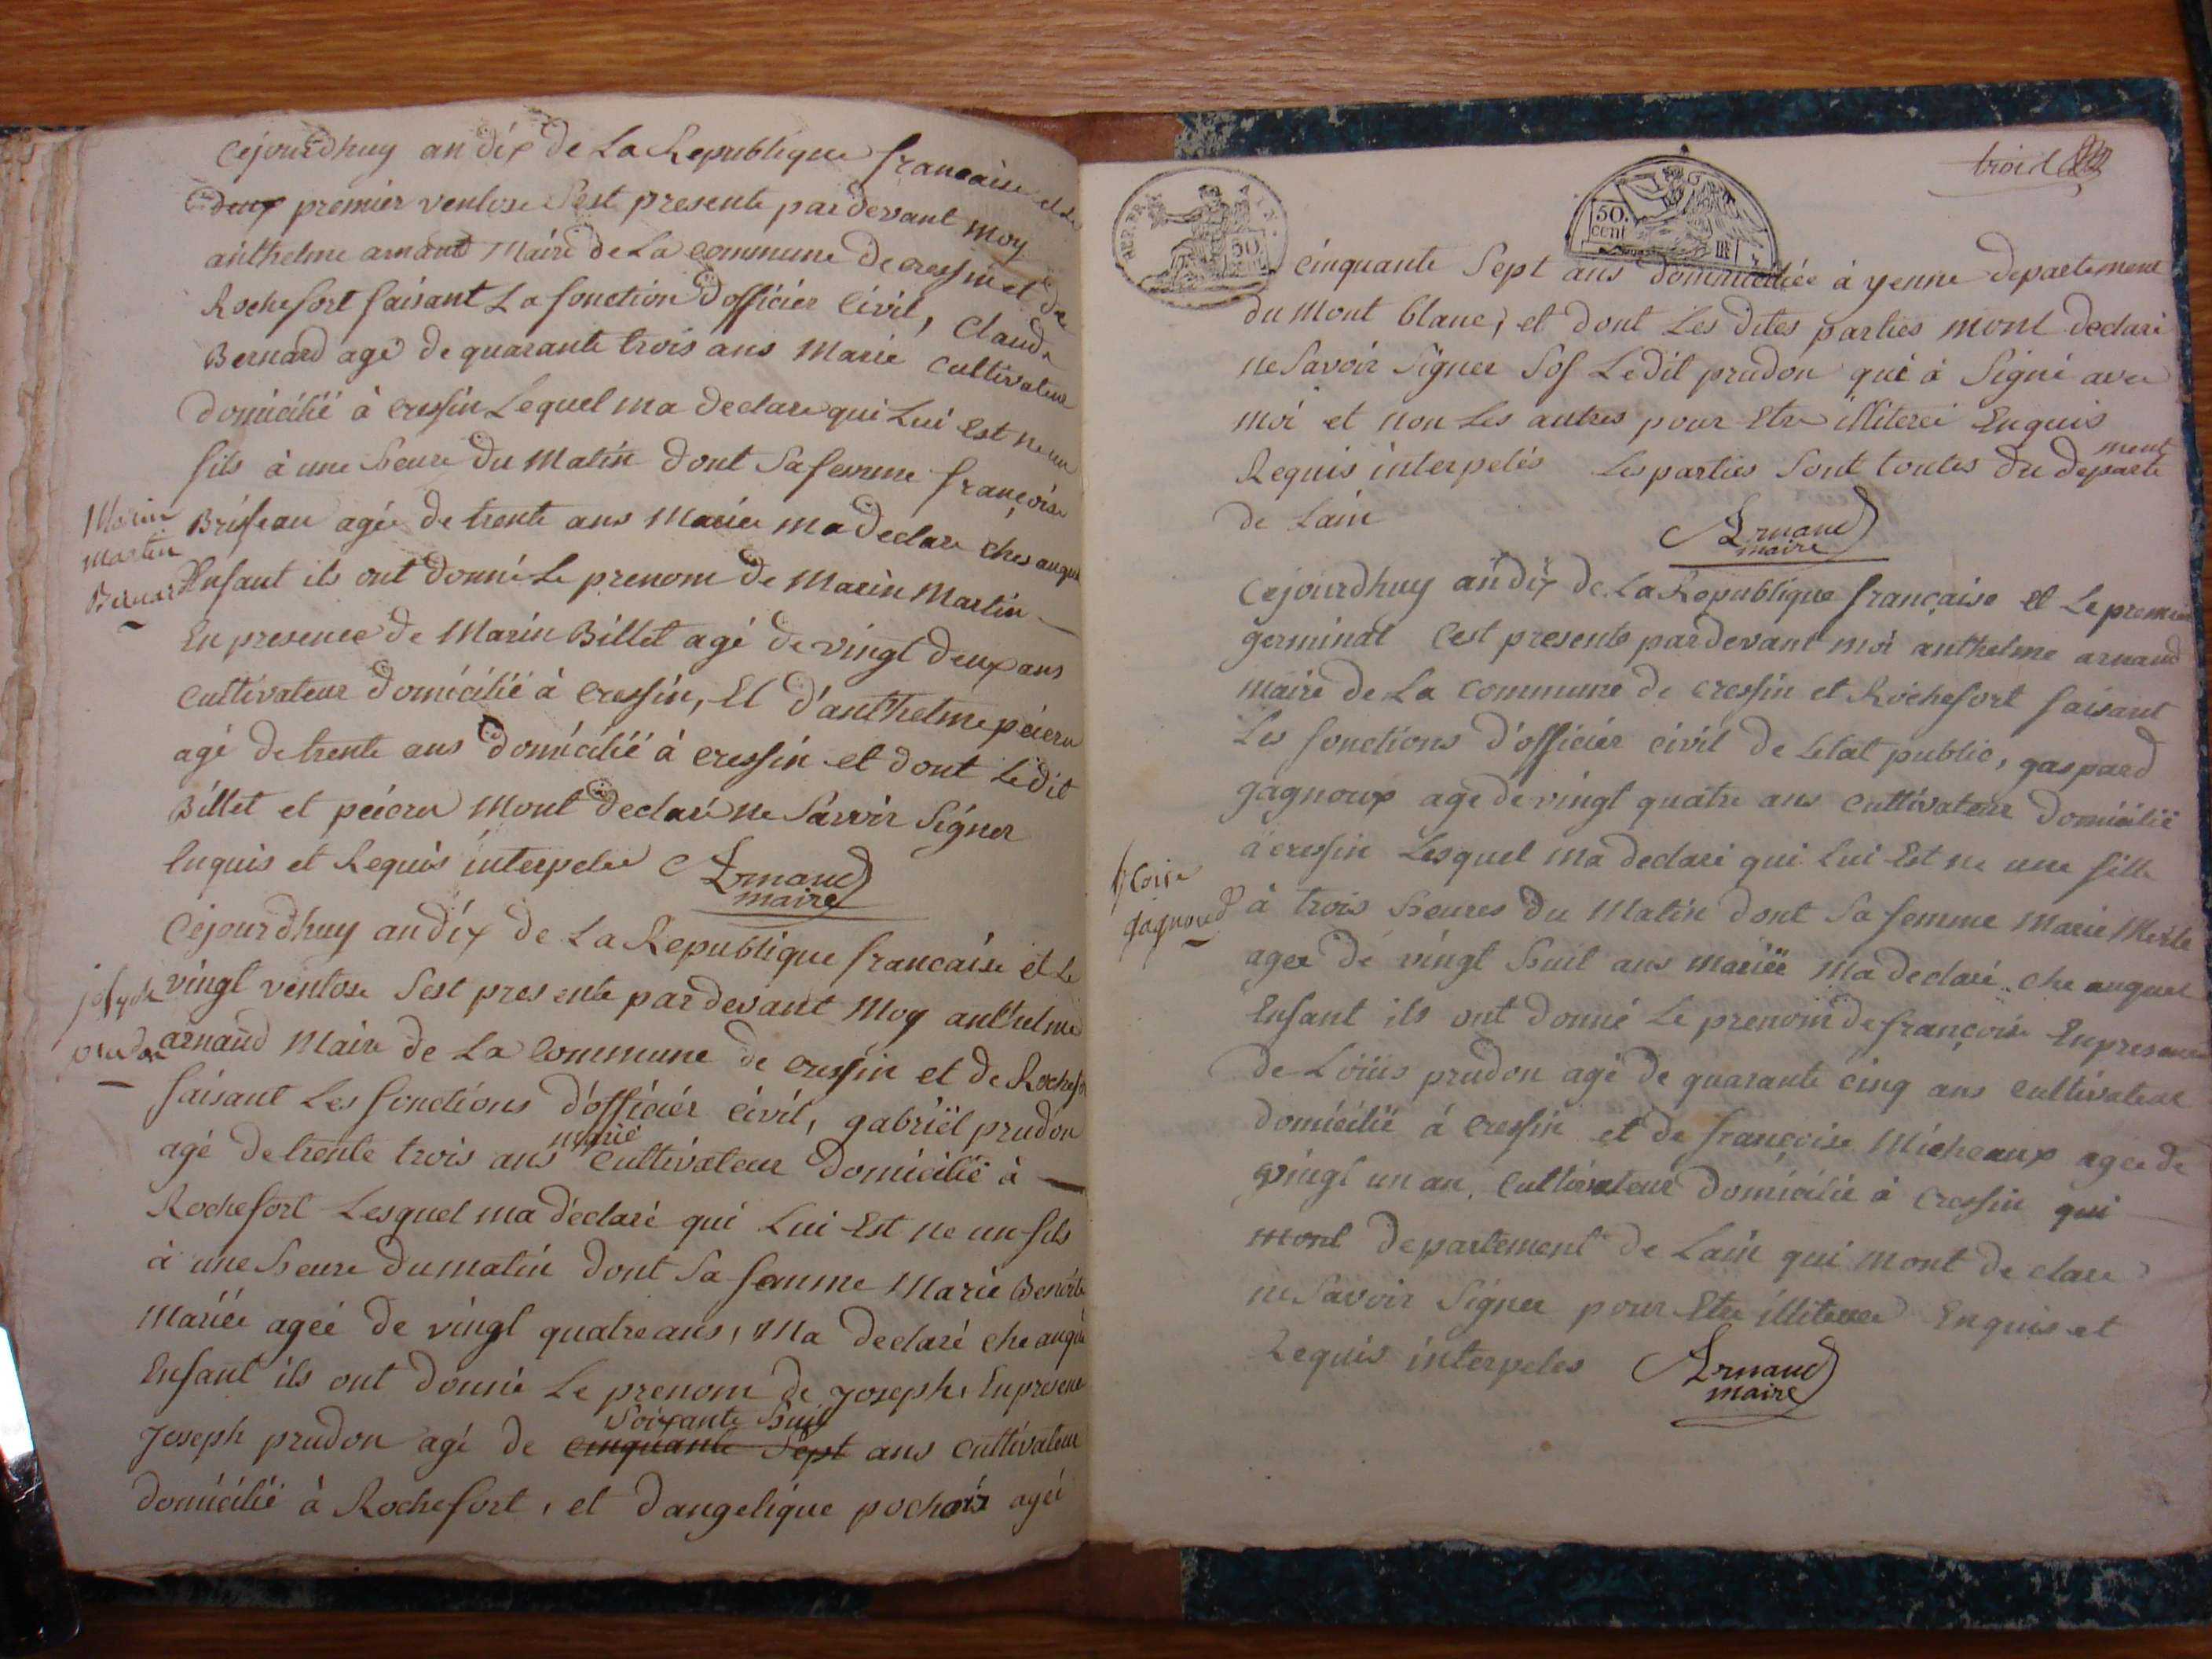 Cejourdhuy an dix de La Republique francaise et le
deux premier ventose Sest presente pardevant moy
anthelme arnaud Maire de La commune de cressin et de
Rochefort faisant La fonction d'officier Civil, Claude
Bernard agé de quarante trois ans Marié Cultivateur
domicilié à cressin Lequel ma declare qui Lui est ne un
fils à une heure du Matin dont Sa femme françoise
Marin
martin
Bernard
Brifeau agée de trente ans Mariée ma declare ches auquel
Enfant ils ont donné Le prenom de Marin Martin
En presence de Marin Billet agé de vingt deux ans
Cultivateur domicilié à cressin, Et d'anthelme
agé de trente ans domicilié à cressin et dont Ledit
Billet et mont declaré ne Savoir Signer
Enquis et Requis interpelée Arnaud
maire
Cejourdhuy an dix de La Republique francaise et Le
joseph
prudon
vingt ventose Sest presente pardevant Moy anthelme
arnaud Maire de La Commune de cressin et de Rochefort
faisant Les fonctions d'officiér civil, gabriël prudon
agé de trente trois ans marié Cultivateur domicilié à
Rochefort Lesquel ma déclaré qui Lui Est ne un fils
à une heure du matin dont Sa femme Marie Benoite
Mariée agée de vingt quatre ans, Ma declaré che auquel
Enfant ils ont donné Le prenom de joseph, En presence
Joseph prudon agé de cinquante Sept Soixante huit ans cultivateur
domicilié à Rochefort, et d'angelique agée
trois
REP. FRA.
50
cent
50.
cent
cinquante Sept ans dommiciliée à yenne departement
du Mont blanc, et dont Les dites parties mont declaré
ne Savoir Signer Sof Ledit prudon qui à Signé avec
moi et non Les autres pour Etre illiterei Enquis
Requis interpelés Les parties Sont toutes du departement
de Lain
Arnaud
maire
Cejourdhuy an dix de La Republique française et Le premier
germinal Cest presente pardevant moi anthelme arnaud
maire de La Commune de cressin et Rochefort faisant
Les fonctions d'officiér civil de Létat public, gaspard
gagnoux agé de vingt quatre ans Cultivateur domicilié
à cressin Lesquel ma declaré qui Lui Est ne une fille
fcoise
gagnoud
à trois heures du Matin dont Sa femme Marie Merle
agée de vingt huit ans mariée Ma declaré che auquel
Enfant ils ont donné Le prenom de françoise En presence
de Loüis prudon agé de quarante cinq ans cultivateur
domicilié à Cressin et de françoise Micheaux agée de
vingt un an, Cultivateur domicilié à Cressin qui
mont departement de Lain qui mont declare
ne Savoir Signer pour Etre Enquis et
Requis interpeles Arnaud
maire